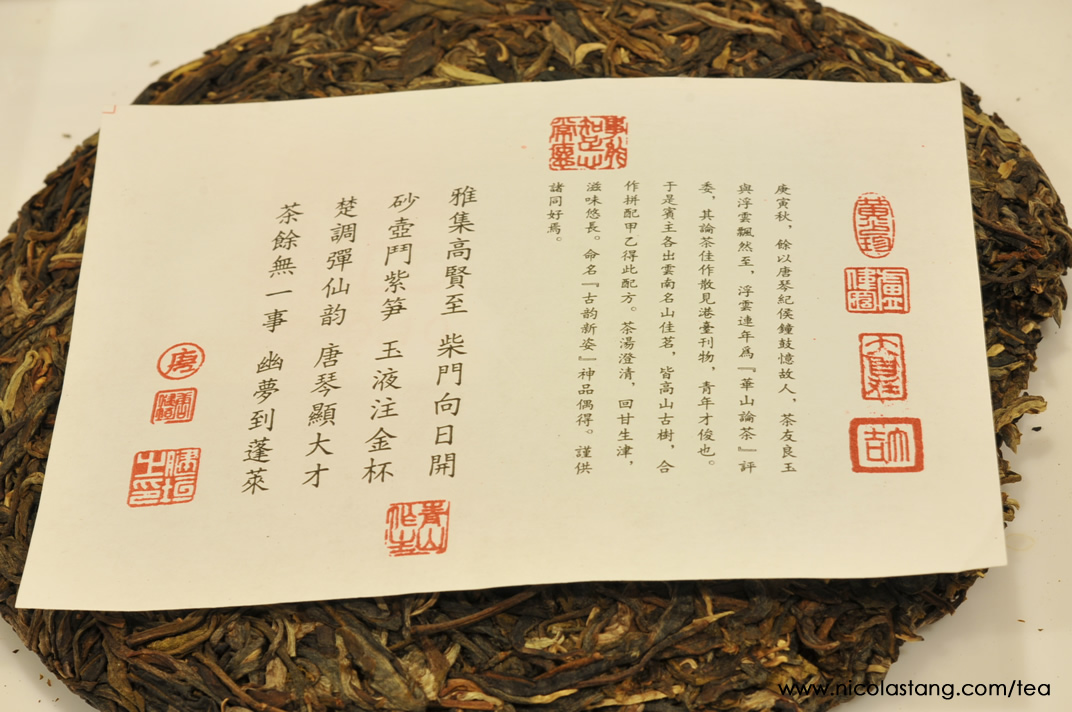 庚寅秋，餘以唐琴紀侯鐘鼓憶故人，茶友良玉
與浮雲飄然至，浮雲連年爲『華山論茶』評
委，其論茶佳作散見港臺刊物，青年才俊也。
于是賓主各出雲南名山佳茗，皆高山古樹，合
作拼配甲乙得此配方。茶湯澄清，回甘生津，
滋味悠長。命名『古韵新姿』神品偶得。謹供
諸同好焉。
事能知足心常愜
雅集高賢至 柴門向日開
砂壺鬥紫笋 玉液注金杯
楚調彈仙韵 唐琴顯大才
茶餘無一事 幽夢到蓬萊
青山作主
唐
www.nicolastang.com/tea